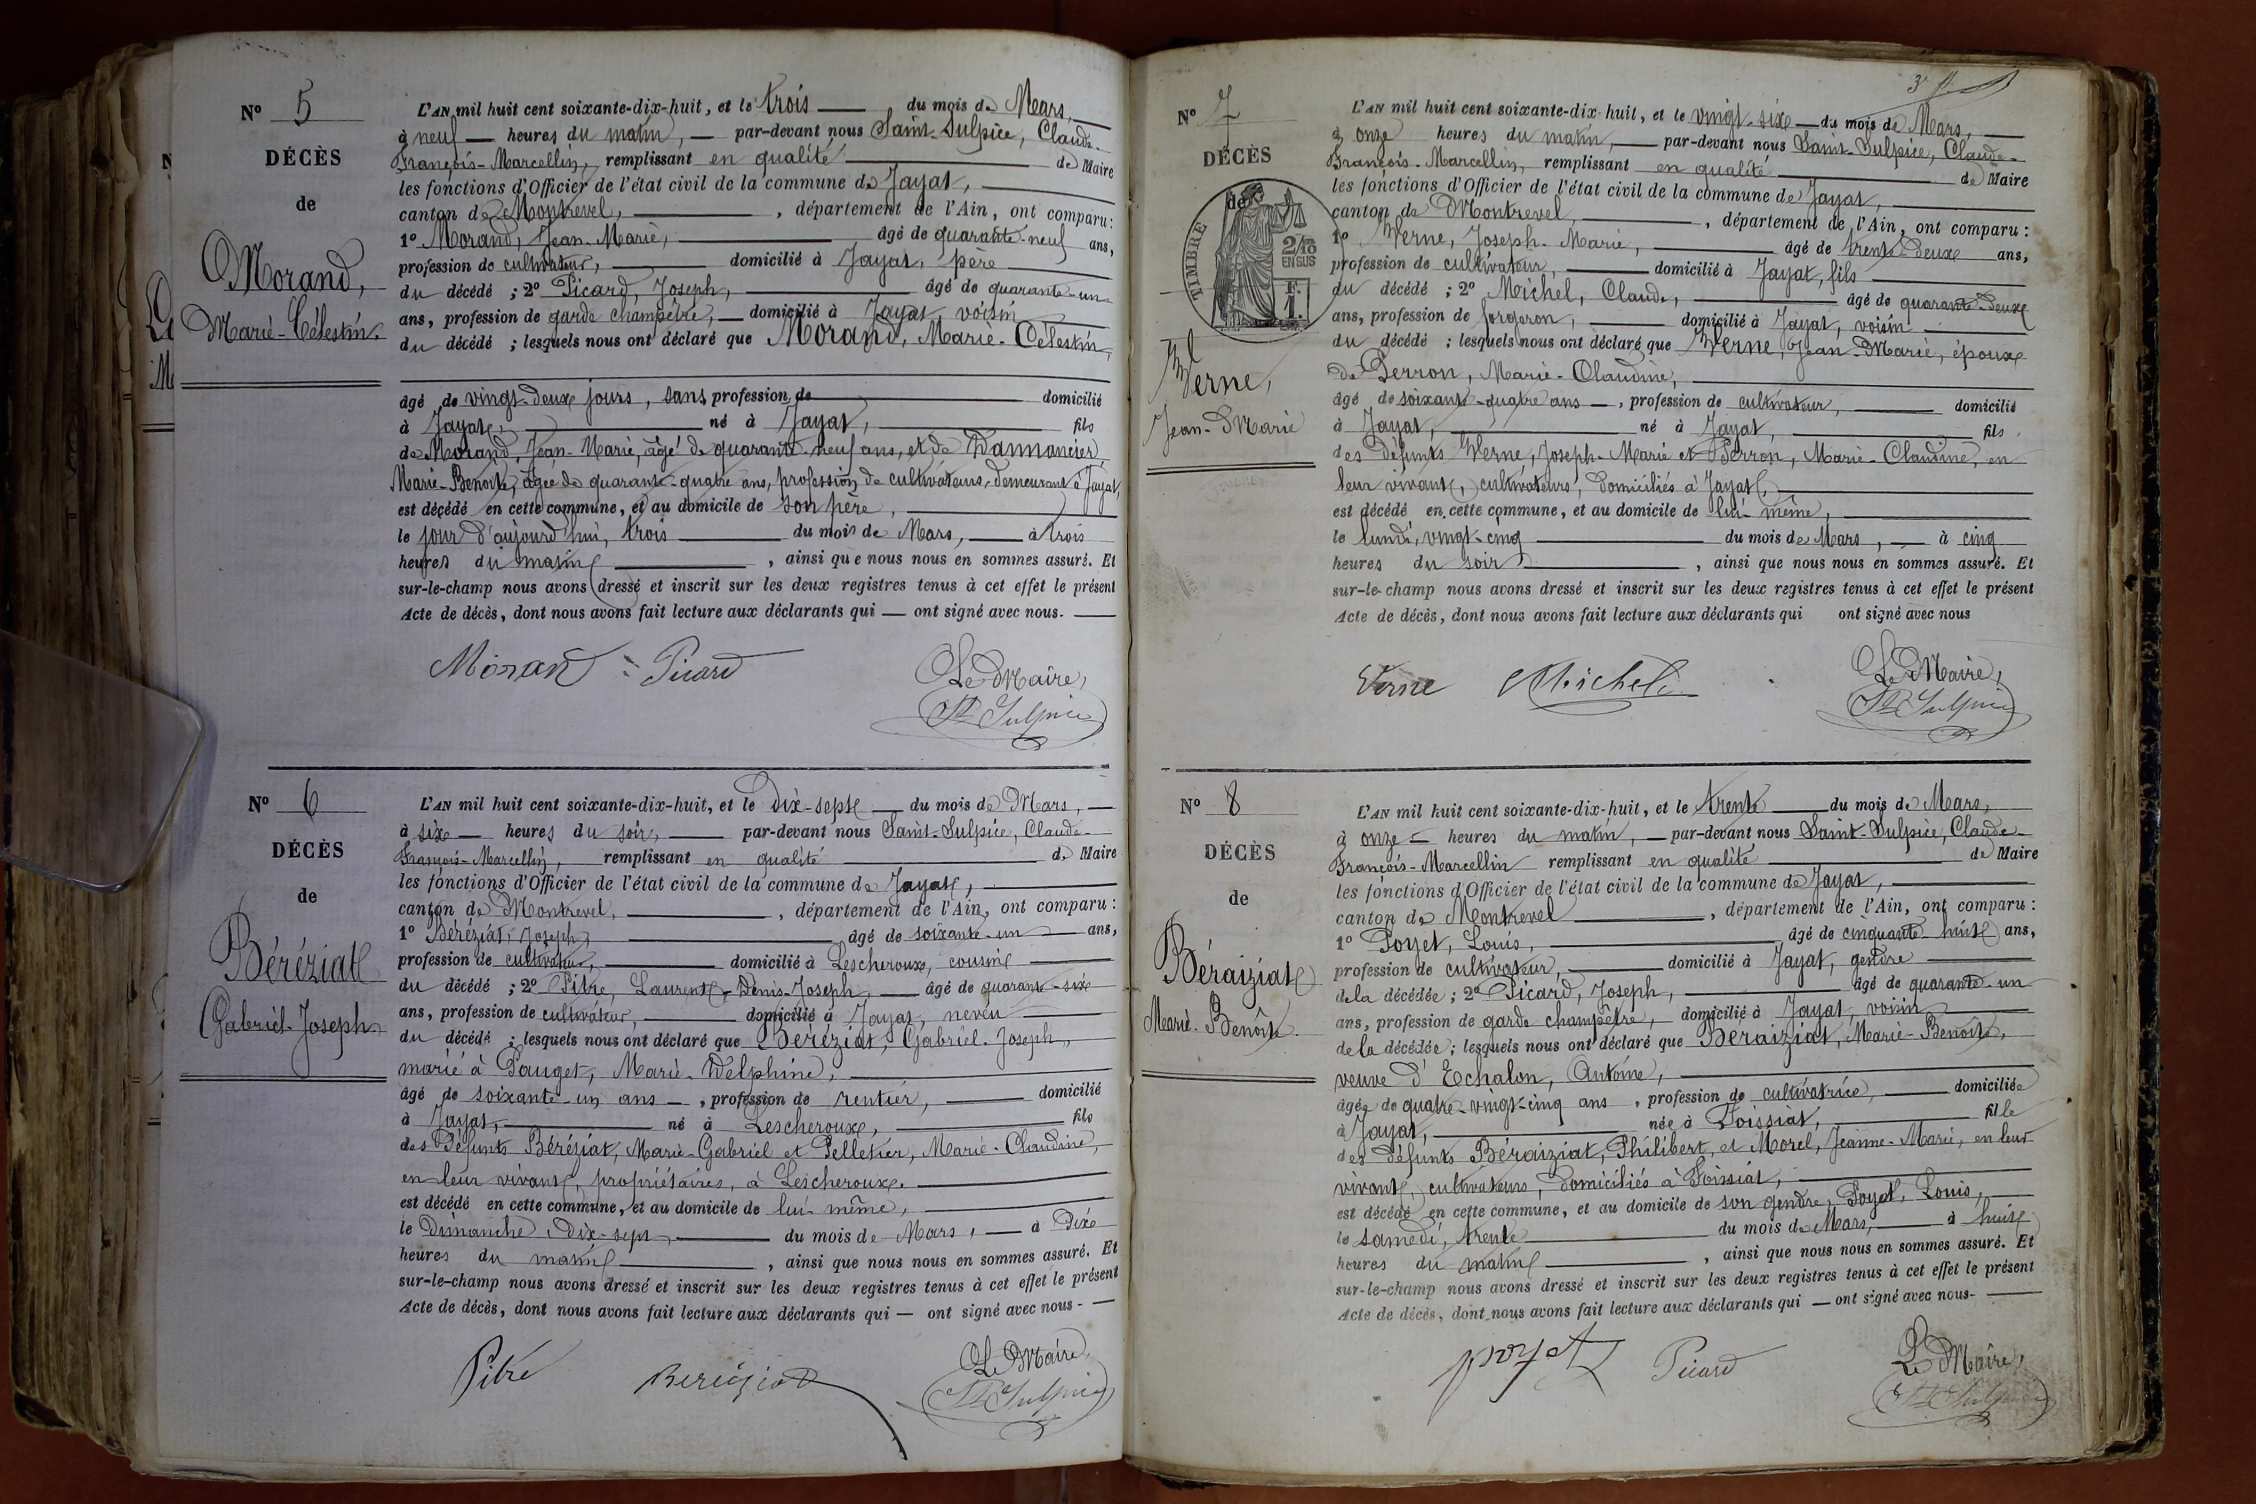 N° 5
DÉCÈS
de
Morand,
Marie-Célestin.
L'AN mil huit cent soixante-dix-huit, et le trois du mois de Mars,
à neuf heures du matin, par-devant nous Saint-Sulpice, Claude-
François-Marcellin, remplissant en qualité de Maire
les fonctions d'Officier de l'état civil de la commune de Jayat,
canton de Montrevel, , département de l'Ain, ont comparu :
1° Morand, Jean-Marie, âgé de quarante-neuf ans,
profession de cultivateur, domicilié à Jayat, père
du décédé ; 2° Picard, Joseph, âgé de quarante-un
ans, profession de garde champêtre, domicilié à Jayat, voisin
du décédé ; lesquels nous ont déclaré que Morand, Marie-Célestin,
âgé de vingt-deux jours, sans profession de domicilié
à Jayat, né à Jayat, fils
de Morand, Jean-Marie, âgé de quarante-neuf ans, et de Dannancier,
Marie-Benoîte, âgée de quarante-quatre ans, profession de cultivateurs, demeurant à Jayat,
est décédé en cette commune, et au domicile de son père,
le jour d'aujourd'hui, trois du mois de Mars, à trois
heures du matin , ainsi que nous nous en sommes assuré. Et
sur-le-champ nous avons dressé et inscrit sur les deux registres tenus à cet effet le présent
Acte de décès, dont nous avons fait lecture aux déclarants qui — ont signé avec nous.
Morand Picard
Le Maire,
St Sulpice
N° 6
DÉCÈS
de
Béréziat
Gabriel-Joseph
L'AN mil huit cent soixante-dix-huit, et le dix-sept du mois de Mars,
à six heures du soir, par-devant nous Saint-Sulpice, Claude-
François-Marcellin, remplissant en qualité de Maire
les fonctions d'Officier de l'état civil de la commune de Jayat,
canton de Montrevel, , département de l'Ain, ont comparu :
1° Béréziat, Joseph, âgé de soixante-un ans,
profession de cultivateur, domicilié à Lescheroux, cousin
du décédé ; 2° Pitre, Laurent-Denis-Joseph, âgé de quarante-six
ans, profession de cultivateur, domicilié à Jayat, neveu
du décédé ; lesquels nous ont déclaré que Béréziat, Gabriel-Joseph,
marié à Pauget, Marie-Delphine,
âgé de soixante-un ans , profession de rentier, domicilié
à Jayat, né à Lescheroux, fils
des défunts Béréziat, Marie-Gabriel et Pelletier, Marie-Claudine,
en leur vivant, propriétaires, à Lescheroux.
est décédé en cette commune, et au domicile de lui-même,
le Dimanche, dix-sept du mois de Mars, à dix
heures du matin , ainsi que nous nous en sommes assuré. Et
sur-le-champ nous avons dressé et inscrit sur les deux registres tenus à cet effet le présent
Acte de décès, dont nous avons fait lecture aux déclarants qui — ont signé avec nous -
Pitre Béréziat
Le Maire,
St Sulpice
3e
N° 7
DÉCÈS
de
TIMBRE
2/10
EN SUS
F.
1.
Verne,
Jean-Marie
L'AN mil huit cent soixante-dix-huit, et le vingt-six du mois de Mars,
à onze heures du matin, par-devant nous Saint-Sulpice, Claude-
François-Marcellin, remplissant en qualité de Maire
les fonctions d'Officier de l'état civil de la commune de Jayat,
canton de Montrevel, , département de l'Ain, ont comparu :
1° Verne, Joseph-Marie, âgé de trente-deux ans,
profession de cultivateur, domicilié à Jayat, fils
du décédé ; 2° Michel, Claude, âgé de quarante-deux
ans, profession de forgeron, domicilié à Jayat, voisin
du décédé ; lesquels nous ont déclaré que Verne, Jean-Marie, époux
de Perron, Marie-Claudine,
âgé de soixante-quatre ans , profession de cultivateur, domicilié
à Jayat, né à Jayat, fils
des défunts Verne, Joseph-Marie et Perron, Marie-Claudine, en
leur vivant, cultivateurs, domiciliés à Jayat,
est décédé en cette commune, et au domicile de lui-même,
le lundi, vingt-cinq du mois de Mars, à cinq
heures du soir , ainsi que nous nous en sommes assuré. Et
sur-le-champ nous avons dressé et inscrit sur les deux registres tenus à cet effet le présent
Acte de décès, dont nous avons fait lecture aux déclarants qui ont signé avec nous
Verne Michel
Le Maire,
St Sulpice
N° 8
DÉCÈS
de
Béraiziat
Marie-Benoîte.
L'AN mil huit cent soixante-dix-huit, et le trente du mois de Mars,
à onze heures du matin, par-devant nous Saint-Sulpice, Claude-
François-Marcellin remplissant en qualité de Maire
les fonctions d'Officier de l'état civil de la commune de Jayat,
canton de Montrevel , département de l'Ain, ont comparu :
1° Poyet, Louis, âgé de cinquante-huit ans,
profession de cultivateur, domicilié à Jayat, gendre
de la décédée ; 2° Picard, Joseph, âgé de quarante-un
ans, profession de garde champêtre, domicilié à Jayat, voisin
de la décédée ; lesquels nous ont déclaré que Béraiziat, Marie-Benoîte,
veuve d'Echalon, Antoine,
âgée de quatre-vingt-cinq ans , profession de cultivatrice, domiciliée
à Jayat, née à Foissiat, fille
des défunts Béraiziat, Philibert, et Morel, Jeanne-Marie, en leur
vivant, cultivateurs, domiciliés à Foissiat,
est décédé en cette commune, et au domicile de son gendre, Poyet, Louis,
le samedi, trente du mois de Mars, à huit
heures du matin , ainsi que nous nous en sommes assuré. Et
sur-le-champ nous avons dressé et inscrit sur les deux registres tenus à cet effet le présent
Acte de décès, dont nous avons fait lecture aux déclarants qui — ont signé avec nous-
poyet Picard
Le Maire,
St Sulpice